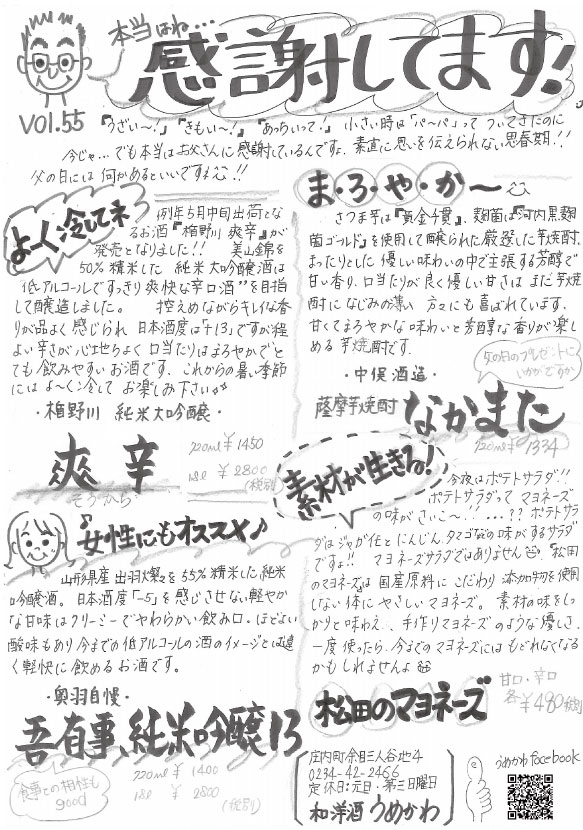 本当はね…
感謝してます!
VOl.55
『うざい〜!』『きもい〜!』『あっちいって!』小さい時は「パ〜パ」ってついてきたのに
今じゃ…でも本当はお父さんに感謝しているんですよ。素直に思いを伝えられない思春期!!
父の日には何かあるといいですネ!!
よ〜く冷してネ
例年5月中旬出荷とな
るお酒『楯野川 爽辛』が
発売となりました!! 美山錦を
50%精米した 純米大吟醸酒は
低アルコールですっきり爽快な辛口酒"を目指
して醸造しました。 控えめながらキレイな香
りが品よく感じられ 日本酒度は「+13」ですが程
よい辛さが心地よく 口当たりはまろやかでと
ても飲みやすいお酒です。これからの暑い季節
には よ〜く冷して お楽しみ下さい
・楯野川 純米大吟醸・
爽辛
そうから
720ml ¥1450
1.8l ¥2800
(税別)
♪女性にもオススメ♪
山形県産 出羽燦々を55%精米した純米
吟醸酒。日本酒度「-5」を感じさせない軽やか
な甘味はクリーミーでやわらかい飲み口。ほどよい
酸味もあり今までの低アルコールの酒のイメージとは違
く軽快に飲めるお酒です。
・奥羽自慢・
吾有事、純米吟醸13
食事との相性も
good
720ml ¥1400
1.8l ¥2800
(税別)
ま・ろ・や・か〜
さつま芋は『黄金千貫』、麹菌は『河内黒麹
菌ゴールド』を使用して醸られた厳選した芋焼酎。
まったりとした優しい味わいの中で主張する芳醇で
甘い香り。口当たりが良く優しい甘さは まだ芋焼
酎になじみの薄い 方々にも喜ばれています。
甘くてまろやかな味わいと芳醇な香りが楽し
める芋焼酎です。
父の日のプレゼントに
いかがですか
・中俣酒造・
薩摩芋焼酎 なかまた
720ml ¥1334
素材が生きる!
今夜はポテトサラダ!!
ポテトサラダって マヨネーズ
の味がさいこ〜!!…??ポテトサラ
ダはジャガ化とにんじん、タマゴなどの味がするサラダ
ですよ!! マヨネーズサラダではありません。『松田
のマヨネーズ』は国産原料にこだわり、添加物を使用
しない体にやさしいマヨネーズ。素材の味をしっ
かりと味わえ、手作りマヨネーズのような優しさ。
一度使ったら、今までのマヨネーズにはもどれなくなる
かもしれませんよ
松田のマヨネーズ
甘口・辛口
各¥480税別
庄内町余目三人谷地4
0234-42-2466
定休日:元日・第三日曜日
和洋酒うめかわ
うめかわfacebook